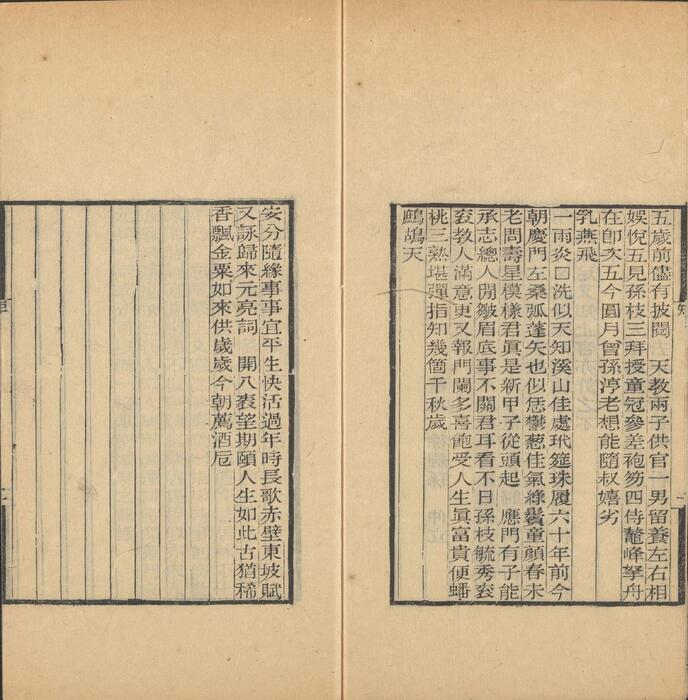 五歲前儘有披閱　天教兩子供官一男留養左右相
娛悅五見孫枝三拜授童冠參差袍笏四侍鼇峰拏舟
在卽次五今圓月曾孫渟老想能隨叔嬉劣
乳燕飛
一雨炎□洗似天知溪山佳處玳筵珠履六十年前今
朝慶門左桑弧蓬矢也似恁鬱葱佳氣綠鬢童顏春未
老問壽星模樣君眞是新甲子從頭起　應門有子能
承志總人閒皺眉底事不關君耳看不日孫枝毓秀袞
袞教人滿意更又報門闌多喜飽受人生眞富貴便蟠
桃三熟堪彈指知幾箇千秋歲
鷓鴣天
安分隨緣事事宜平生快活過年時長歌赤壁東坡賦
又詠歸來元亮詞　開八袠望期頤人生如此古猶稀
香飄金粟如來供歲歲今朝薦酒卮